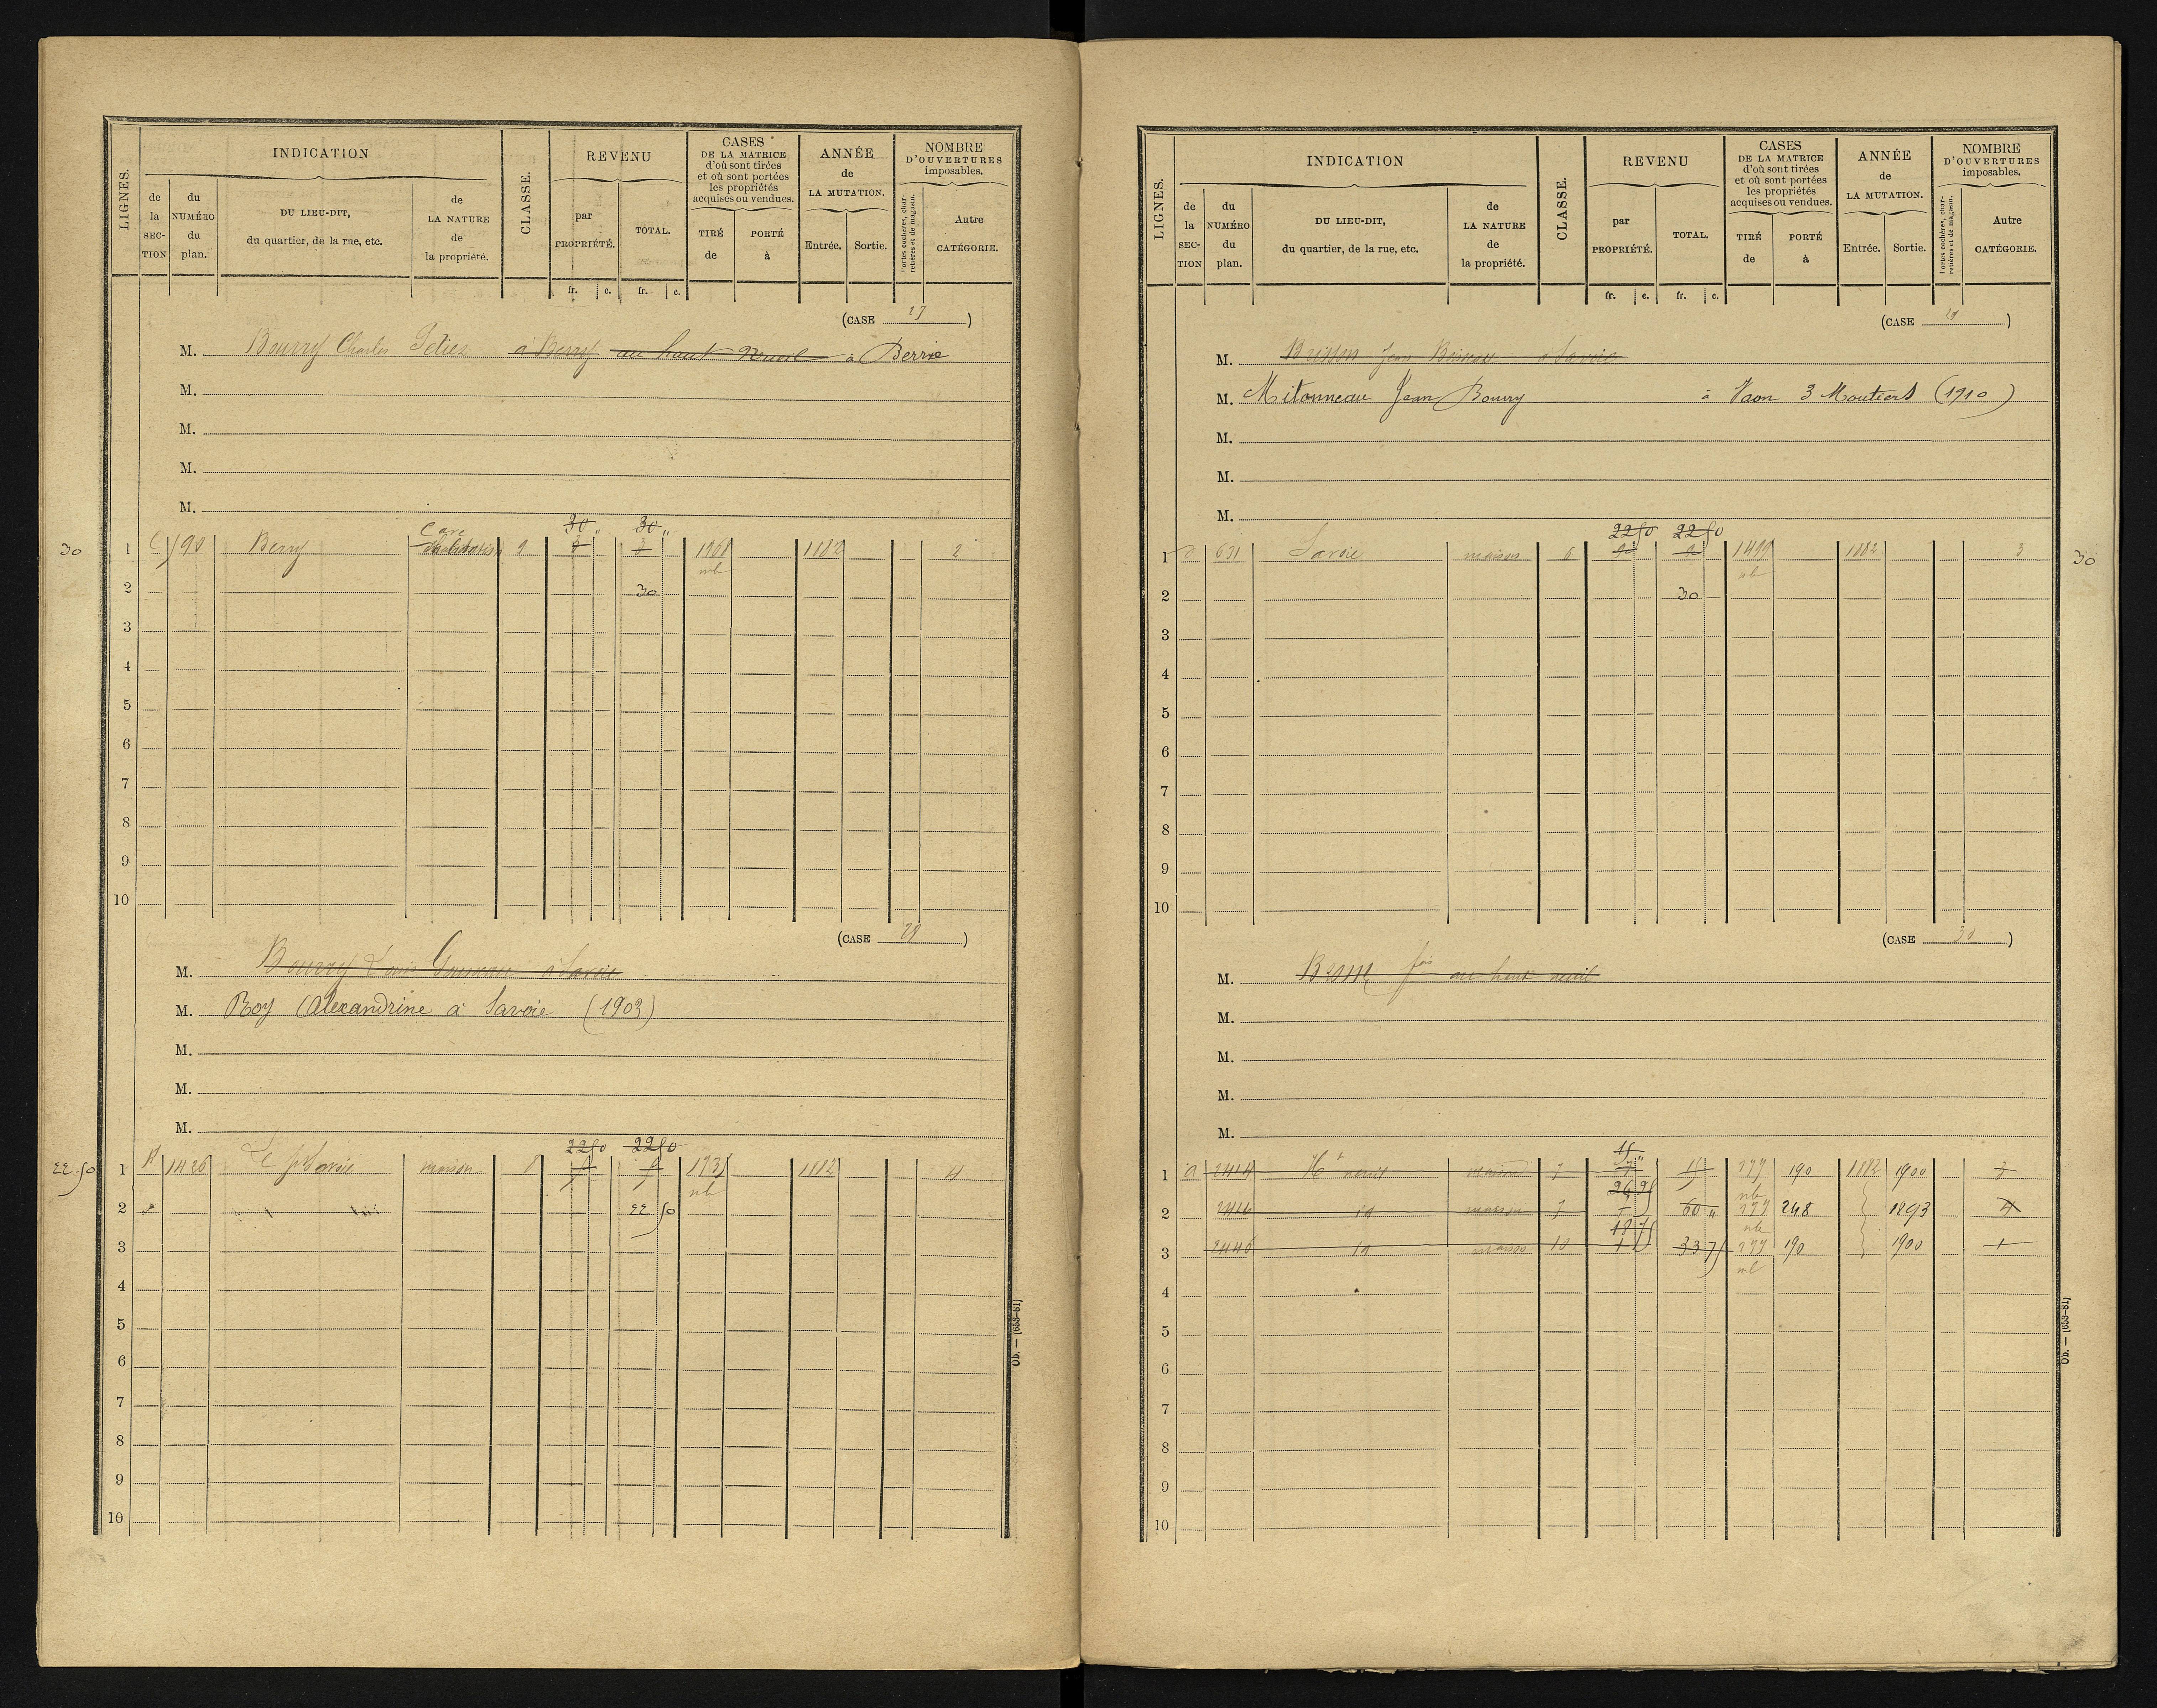 LIGNES.
INDICATION
CLASSE.
REVENU
CASES
DE LA MATRICE
d'où sont tirées
et où sont portées
les propriétés
acquises ou vendues.
ANNÉE
de
LA MUTATION.
NOMBRE
D'OUVERTURES
imposables.
de
la
SEC-
TION
du
NUMÉRO
du
plan.
DU LIEU-DIT,
du quartier, de la rue, etc.
de
LA NATURE
de
la propriété.
par
PROPRIÉTÉ.
TOTAL.
TIRÉ
de
PORTÉ
à
Entrée.
Sortie.
Portes cochères, char-
retières et de magasin.
Autre
CATÉGORIE.
fr. c. fr. c.
(CASE 27)
M. Bourry Charles à Berry au haut à Berrie
M.
M.
M.
M.
30 " 30 "
30 1 C 790 Berry Cave 9 1968 1882 2
nb
2 30
3
4
5
6
7
8
9
10
(CASE 28)
M. Bourry Louis à Savoie
M. Roy Alexandrine à Savoie (1903)
M.
M.
M.
22 50 22 50
22.50 1 1426 Savoie maison 8 1735 1882 4
nb
2 22 50
3
4
5
6
7
8
9
10
Ob. — (653-81)
LIGNES.
INDICATION
CLASSE.
REVENU
CASES
DE LA MATRICE
d'où sont tirées
et où sont portées
les propriétés
acquises ou vendues.
ANNÉE
de
LA MUTATION.
NOMBRE
D'OUVERTURES
imposables.
de
la
SEC-
TION
du
NUMÉRO
du
plan.
DU LIEU-DIT,
du quartier, de la rue, etc.
de
LA NATURE
de
la propriété.
par
PROPRIÉTÉ.
TOTAL.
TIRÉ
de
PORTÉ
à
Entrée.
Sortie.
Portes cochères, char-
retières et de magasin.
Autre
CATÉGORIE.
fr. c. fr. c.
(CASE 29)
M. Brisson Jean à Savoie
M. Mitonneau Jean Bourry à Vaon 3 Moutiers (1910)
M.
M.
M.
22 50 22 50
1 631 Savoie maison 6 1499 1882 3 30
nb
2 30
3
4
5
6
7
8
9
10
(CASE 30)
M. au haut neuil
M.
M.
M.
M.
15 "
1 2414 Ht neuil maison 7 15 177 190 1882 1900 3
26 25 nb
2 2414 id maison 7 60 " 177 248 1893 4
18 75 nb
3 2446 id maison 10 33 75 177 190 1900 1
nb
4
5
6
7
8
9
10
Ob. — (653-81)